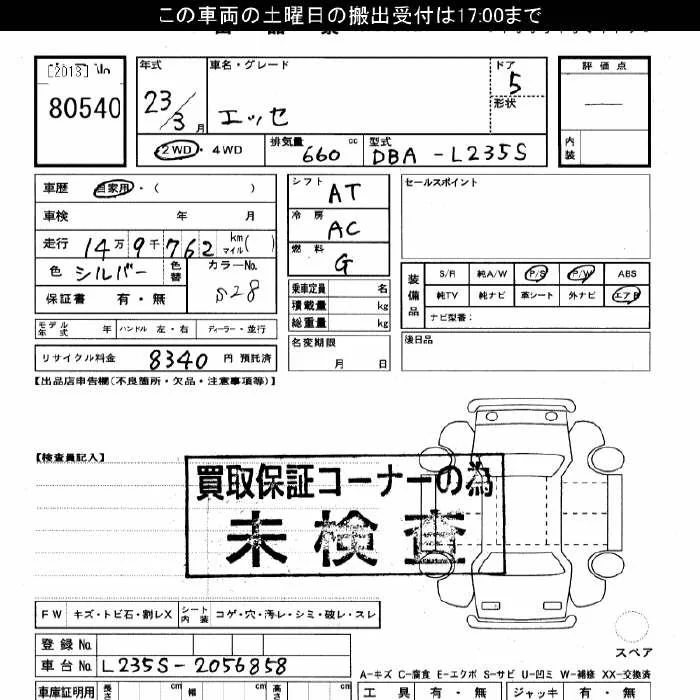 この車両の土曜日の搬出受付は17:00まで
[2013]
80540
年式
23/3月
車名・グレード
エッセ
ドア
5
形状
評価点
内装
2WD・4WD
排気量 660 cc
型式 DBA-L235S
車歴 自家用・( )
車検 年 月
走行 14万9千762 km マイル( )
色 シルバー 色替
カラーNo. S28
保証書 有・無
モデル年式 年 ハンドル 左・右 ディーラー・並行
リサイクル料金 8340 円 預託済
シフト AT
冷房 AC
燃料 G
乗車定員 名
積載量 kg
総重量 kg
名変期限
月 日
セールスポイント
装備品
S/R 純A/W P/S P/W ABS
純TV 純ナビ 革シート 外ナビ エアB
ナビ型番:
後日品
【出品店申告欄(不良箇所・欠品・注意事項等)】
【検査員記入】
買取保証コーナーの為
未検査
FW キズ・トビ石・割レX シート内装 コゲ・穴・汚レ・シミ・破レ・スレ
スペア
登録No.
車台No. L235S-2056858
A-キズ C-腐食 E-エクボ S-サビ U-凹ミ W-補修 XX-交換済
車庫証明用 長さ cm 幅 cm 高さ cm
工具 有・無 ジャッキ 有・無